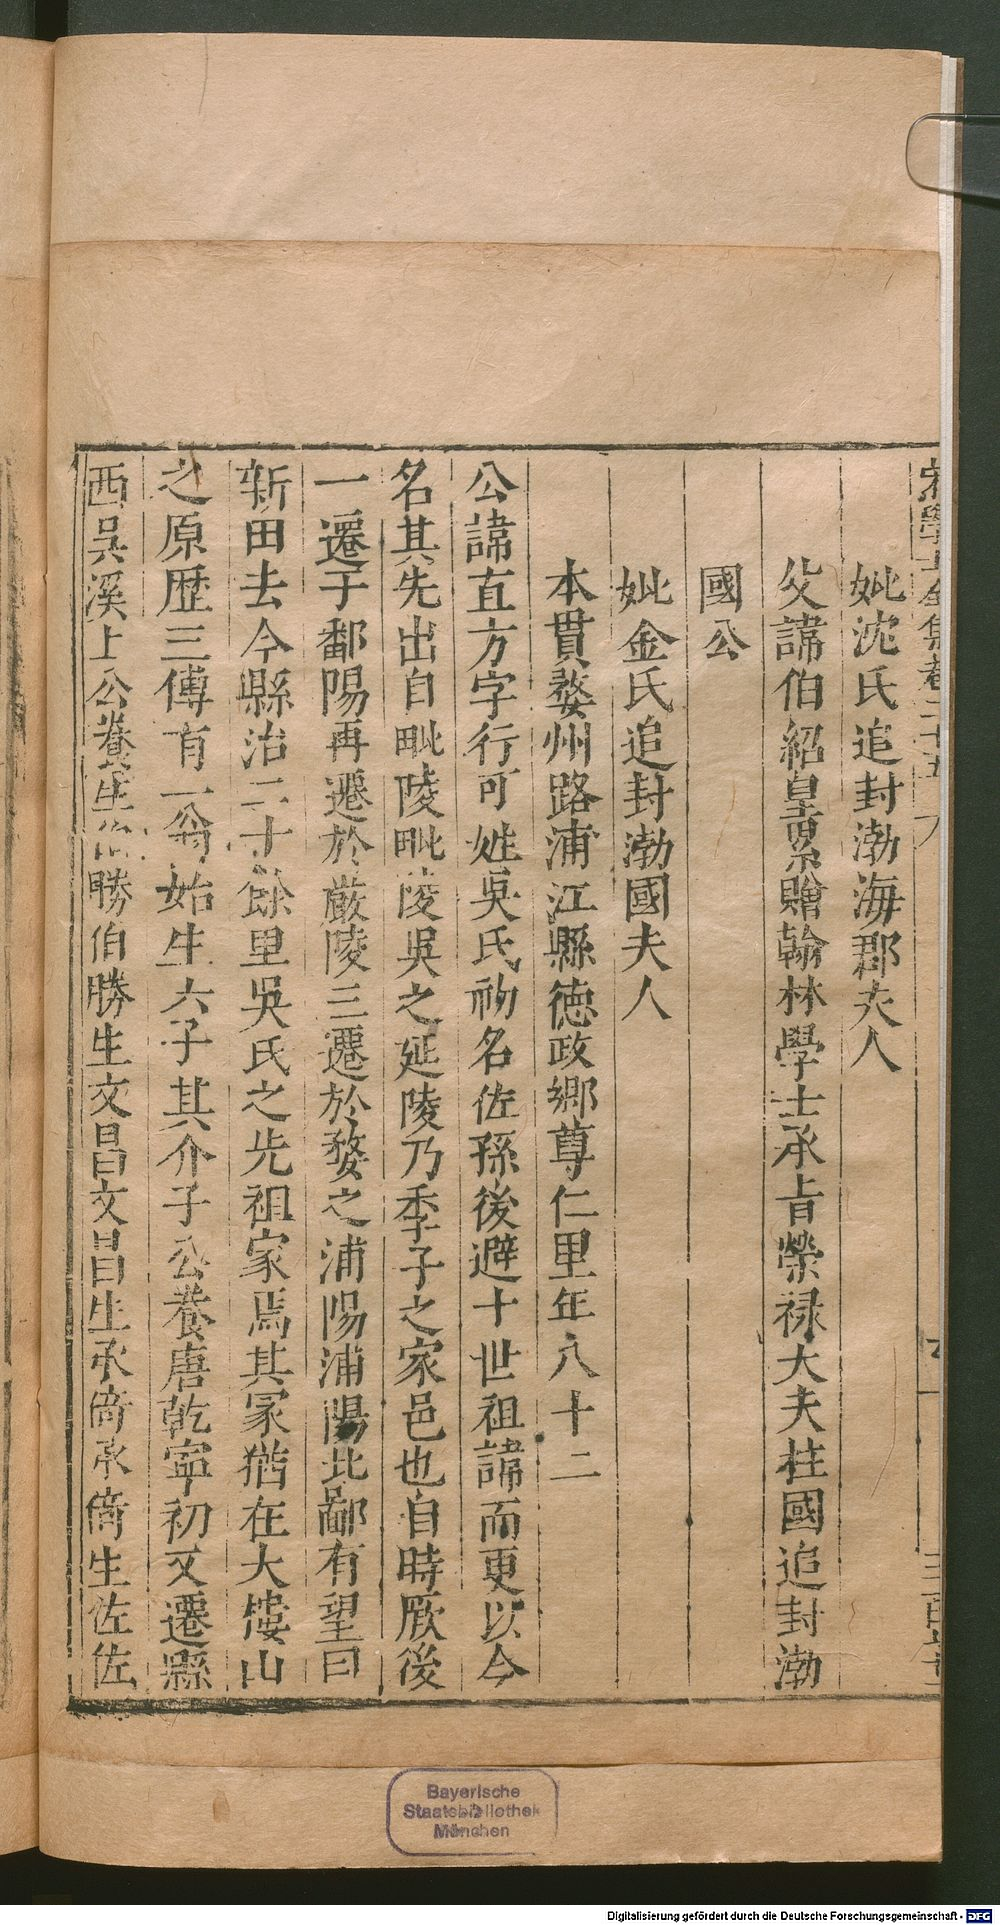 妣沈氏追封渤海郡夫人
父諱伯紹皇累贈翰林學士承旨榮禄大夫柱國追封渤
國公
妣金氏追封渤國夫人
本貫婺州路浦江縣德政鄉尊仁里年八十二
公諱直方字行可姓吳氏初名佐孫後避十世祖諱而更以今
名其先出自毗陵毗陵吳之延陵乃季子之家邑也自時厥後
一遷于鄱陽再遷於嚴陵三遷於婺之浦陽浦陽北鄙有望曰
斩田去今縣治二十餘里吳氏之先祖家焉其冢猶在大樓山
之原歷三傳有一翁始生六子其介子公養唐乾寧初又遷縣
西吳溪上公養生伯勝伯勝生文昌文昌生承俻承俻生佐佐
Bayerische
Staatsbibliothek
München
Digitalisierung gefördert durch die Deutsche Forschungsgemeinschaft - DFG